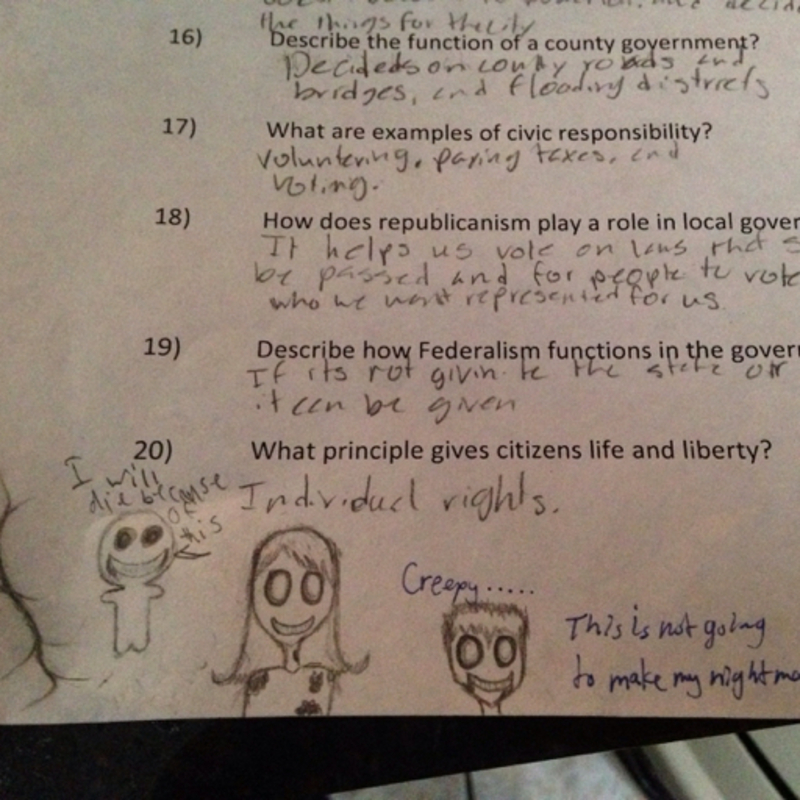 the things for the city
16) Describe the function of a county government?
Decideds on county roads and
bridges, and flooding districts
17) What are examples of civic responsibility?
Voluntering, paying taxes, and
voting.
18) How does republicanism play a role in local gover
It helps us vote on laws that s
be passed and for people to vote
who we want represented for us.
19) Describe how Federalism functions in the gover
If its not givin to the state or
it can be given
20) What principle gives citizens life and liberty?
Individual rights.
I will
die because
of
this
Creepy.....
This is not going
to make my nightma